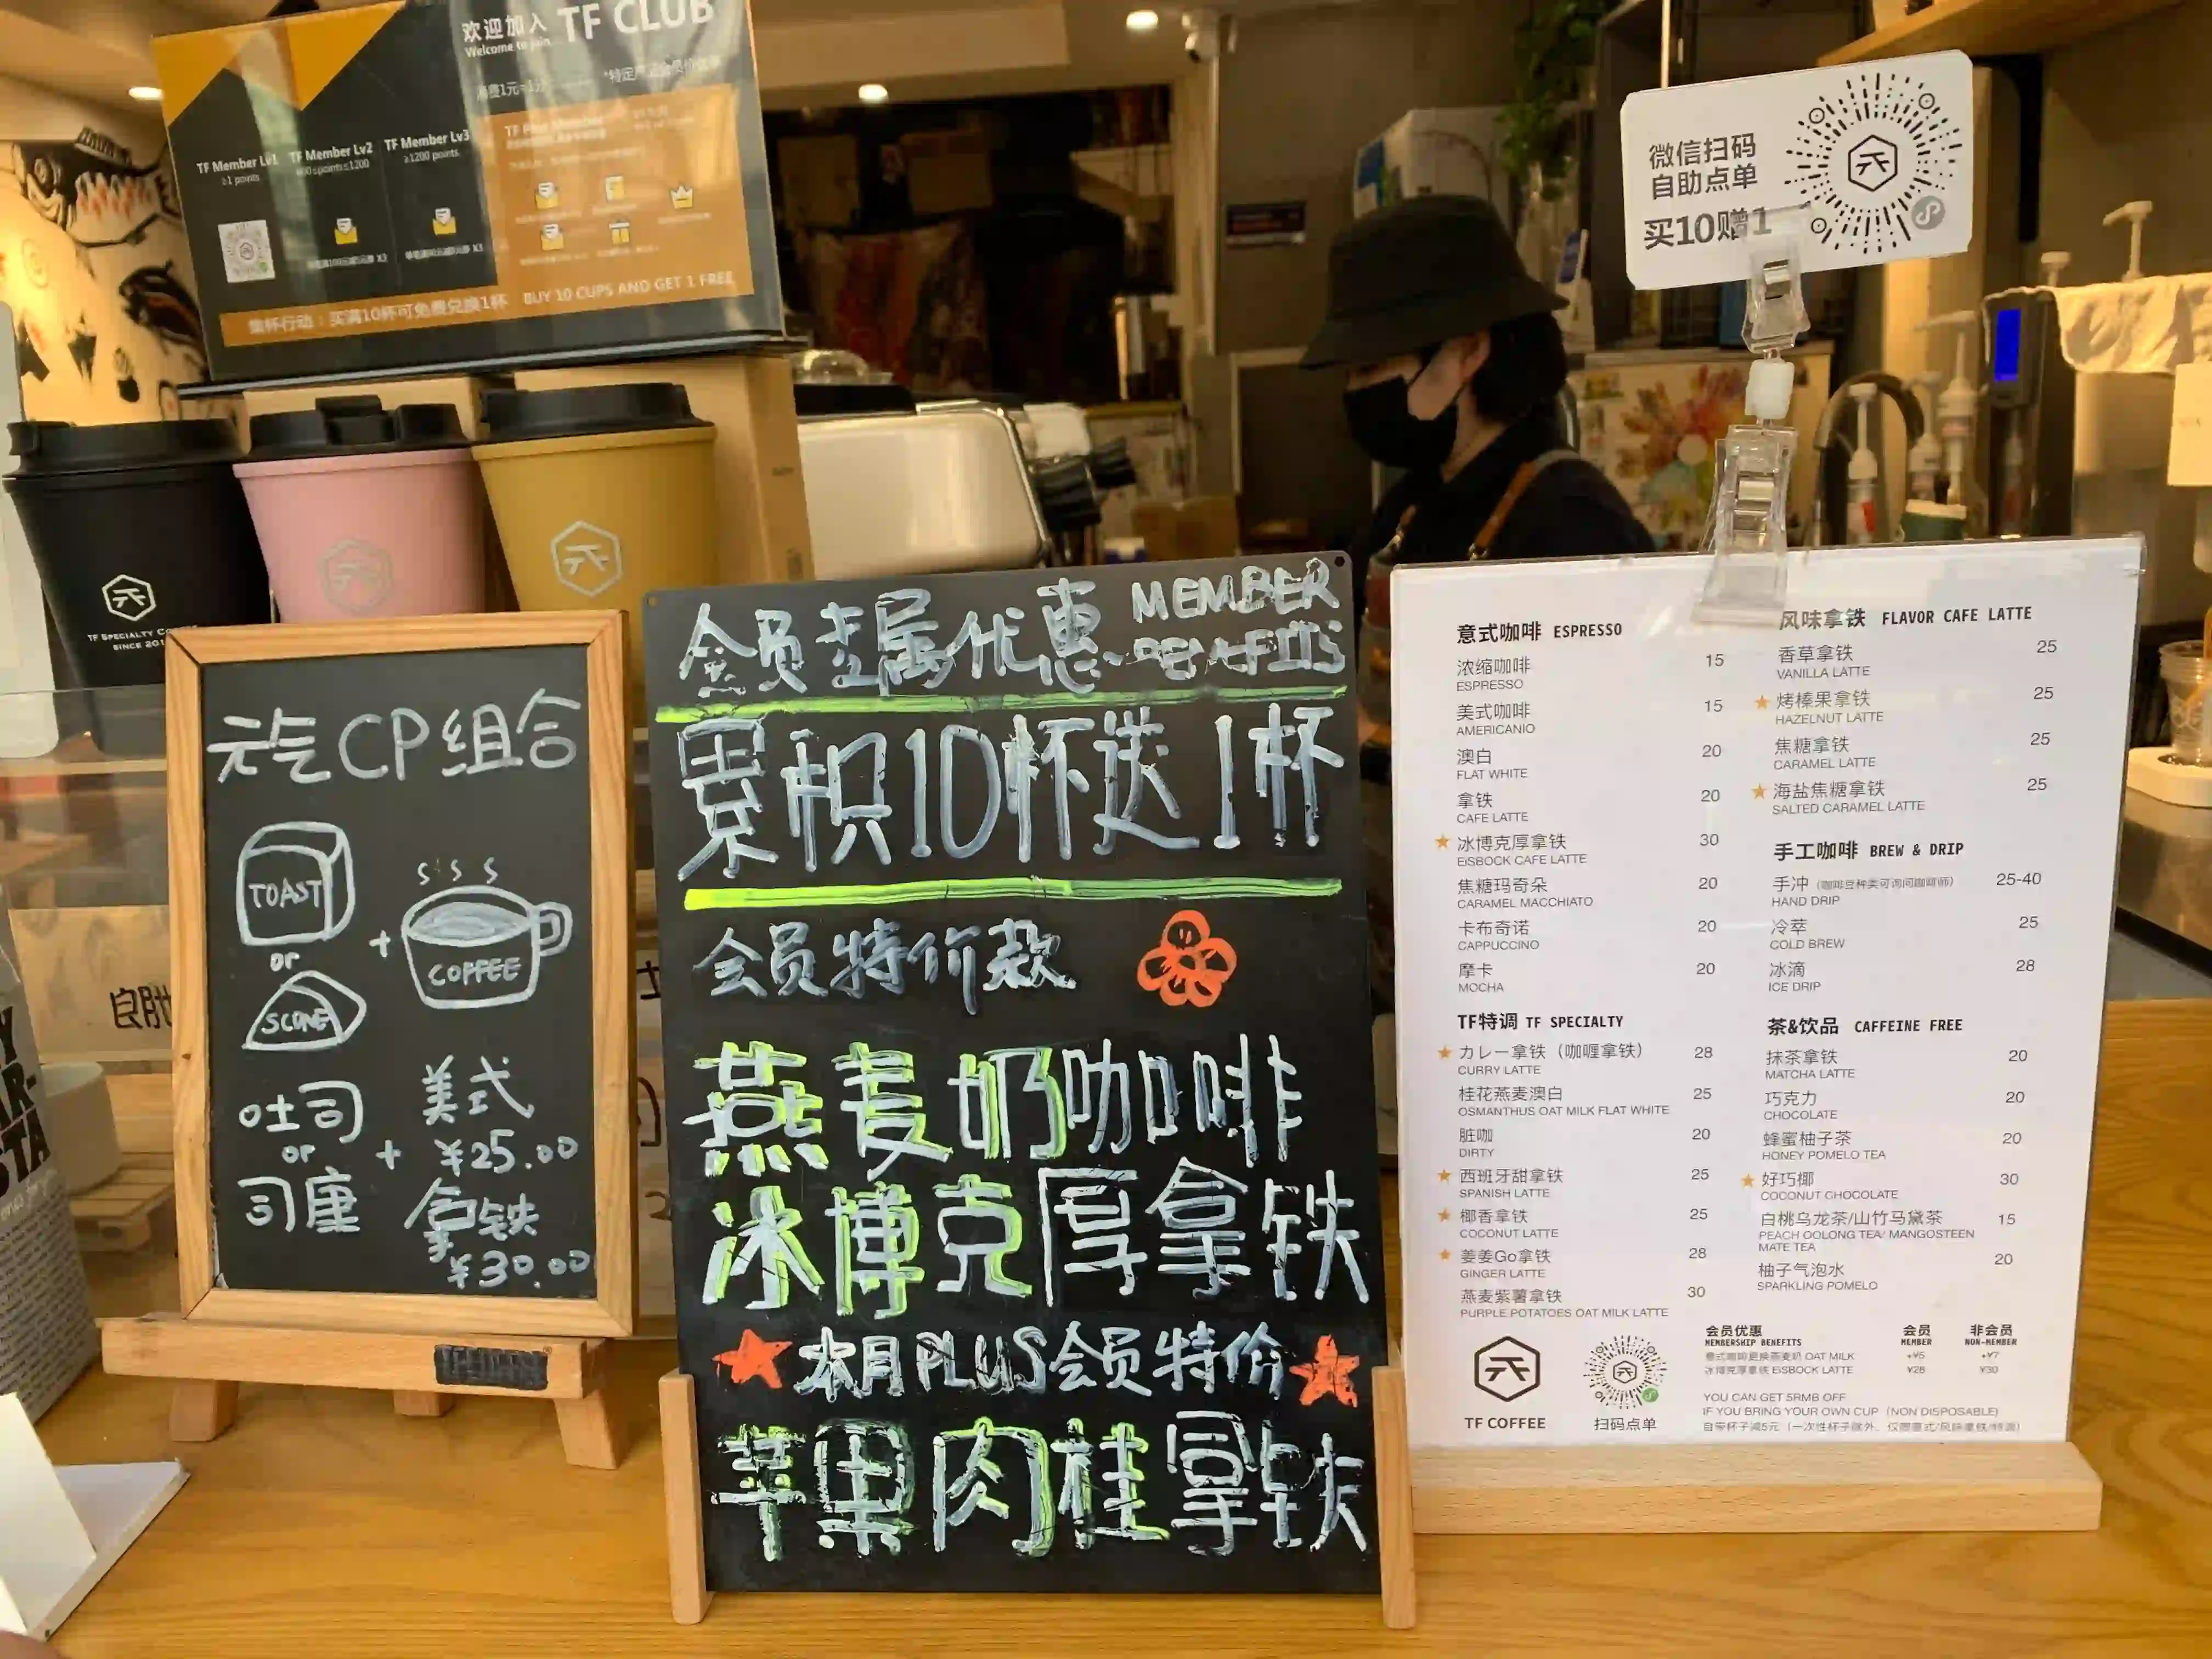 欢迎加入 TF CLUB
Welcome to join
消费1元=1分
TF Member Lv1
≥1 points
TF Member Lv2
TF Member Lv3
≥1200 points
集杯行动：买满10杯可免费兑换1杯 BUY 10 CUPS AND GET 1 FREE
TF SPECIALTY
SINCE
元气CP组合
TOAST
or
SCONE
+
COFFEE
吐司
or
司康
+
美式
¥25.00
拿铁
¥30.00
会员专属优惠 MEMBER
BENEFITS
累积10杯送1杯
会员特价款
燕麦奶咖啡
冰博克厚拿铁
本月PLUS会员特价
苹果肉桂拿铁
微信扫码
自助点单
买10赠1
意式咖啡 ESPRESSO
浓缩咖啡 15
ESPRESSO
美式咖啡 15
AMERICANO
澳白 20
FLAT WHITE
拿铁 20
CAFE LATTE
冰博克厚拿铁 30
EISBOCK CAFE LATTE
焦糖玛奇朵 20
CARAMEL MACCHIATO
卡布奇诺 20
CAPPUCCINO
摩卡 20
MOCHA
TF特调 TF SPECIALTY
カレー拿铁（咖喱拿铁） 28
CURRY LATTE
桂花燕麦澳白 25
OSMANTHUS OAT MILK FLAT WHITE
脏咖 20
DIRTY
西班牙甜拿铁 25
SPANISH LATTE
椰香拿铁 25
COCONUT LATTE
姜姜Go拿铁 28
GINGER LATTE
燕麦紫薯拿铁 30
PURPLE POTATOES OAT MILK LATTE
TF COFFEE
扫码点单
风味拿铁 FLAVOR CAFE LATTE
香草拿铁 25
VANILLA LATTE
烤榛果拿铁 25
HAZELNUT LATTE
焦糖拿铁 25
CARAMEL LATTE
海盐焦糖拿铁 25
SALTED CARAMEL LATTE
手工咖啡 BREW & DRIP
手冲（咖啡豆种类可询问咖啡师） 25-40
HAND DRIP
冷萃 25
COLD BREW
冰滴 28
ICE DRIP
茶&饮品 CAFFEINE FREE
抹茶拿铁 20
MATCHA LATTE
巧克力 20
CHOCOLATE
蜂蜜柚子茶 20
HONEY POMELO TEA
好巧椰 30
COCONUT CHOCOLATE
白桃乌龙茶/山竹马黛茶 15
PEACH OOLONG TEA/ MANGOSTEEN
MATE TEA
柚子气泡水 20
SPARKLING POMELO
会员优惠 会员 非会员
MEMBERSHIP BENEFITS MEMBER NON-MEMBER
意式咖啡更换燕麦奶 OAT MILK +¥5 +¥7
冰博克厚拿铁 EISBOCK LATTE ¥28 ¥30
YOU CAN GET 5RMB OFF
IF YOU BRING YOUR OWN CUP (NON DISPOSABLE)
自带杯子减5元